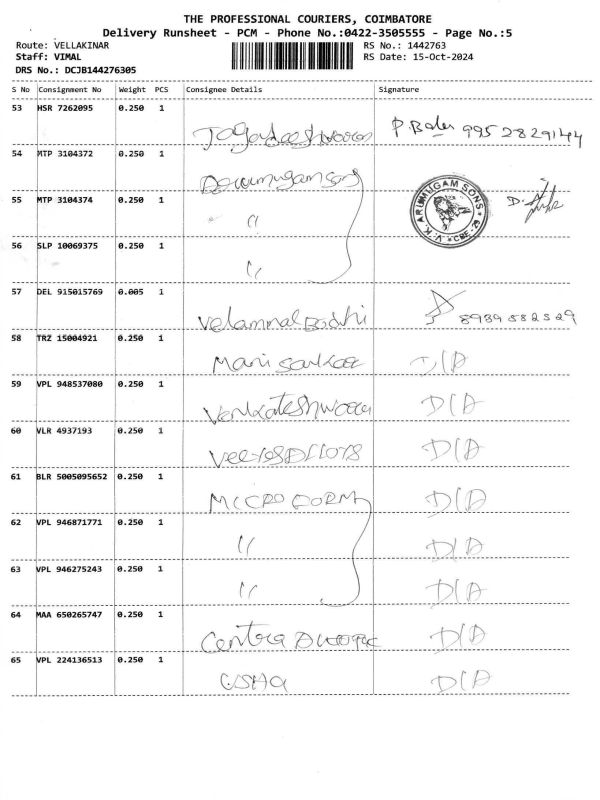 THE PROFESSIONAL COURIERS, COIMBATORE
Delivery Runsheet - PCM - Phone No.:0422-3505555 - Page No.:5
Route: VELLAKINAR RS No.: 1442763
Staff: VIMAL RS Date: 15-Oct-2024
DRS No.: DCJB144276305
S No Consignment No Weight PCS Consignee Details Signature
53 HSR 7262095 0.250 1
P. 9952829144
54 MTP 3104372 0.250 1
55 MTP 3104374 0.250 1 "
K.V. ARUMUGAM SONS * CBE-
56 SLP 10069375 0.250 1 "
57 DEL 915015769 0.005 1
Velammal Bodhi 8989582529
58 TRZ 15004921 0.250 1
Mani D/A
59 VPL 948537080 0.250 1
D/A
60 VLR 4937193 0.250 1
D/A
61 BLR 5005095652 0.250 1
MICRO D/A
62 VPL 946871771 0.250 1
" D/A
63 VPL 946275243 0.250 1
" D/A
64 MAA 650265747 0.250 1
D/A
65 VPL 224136513 0.250 1
USHA D/A